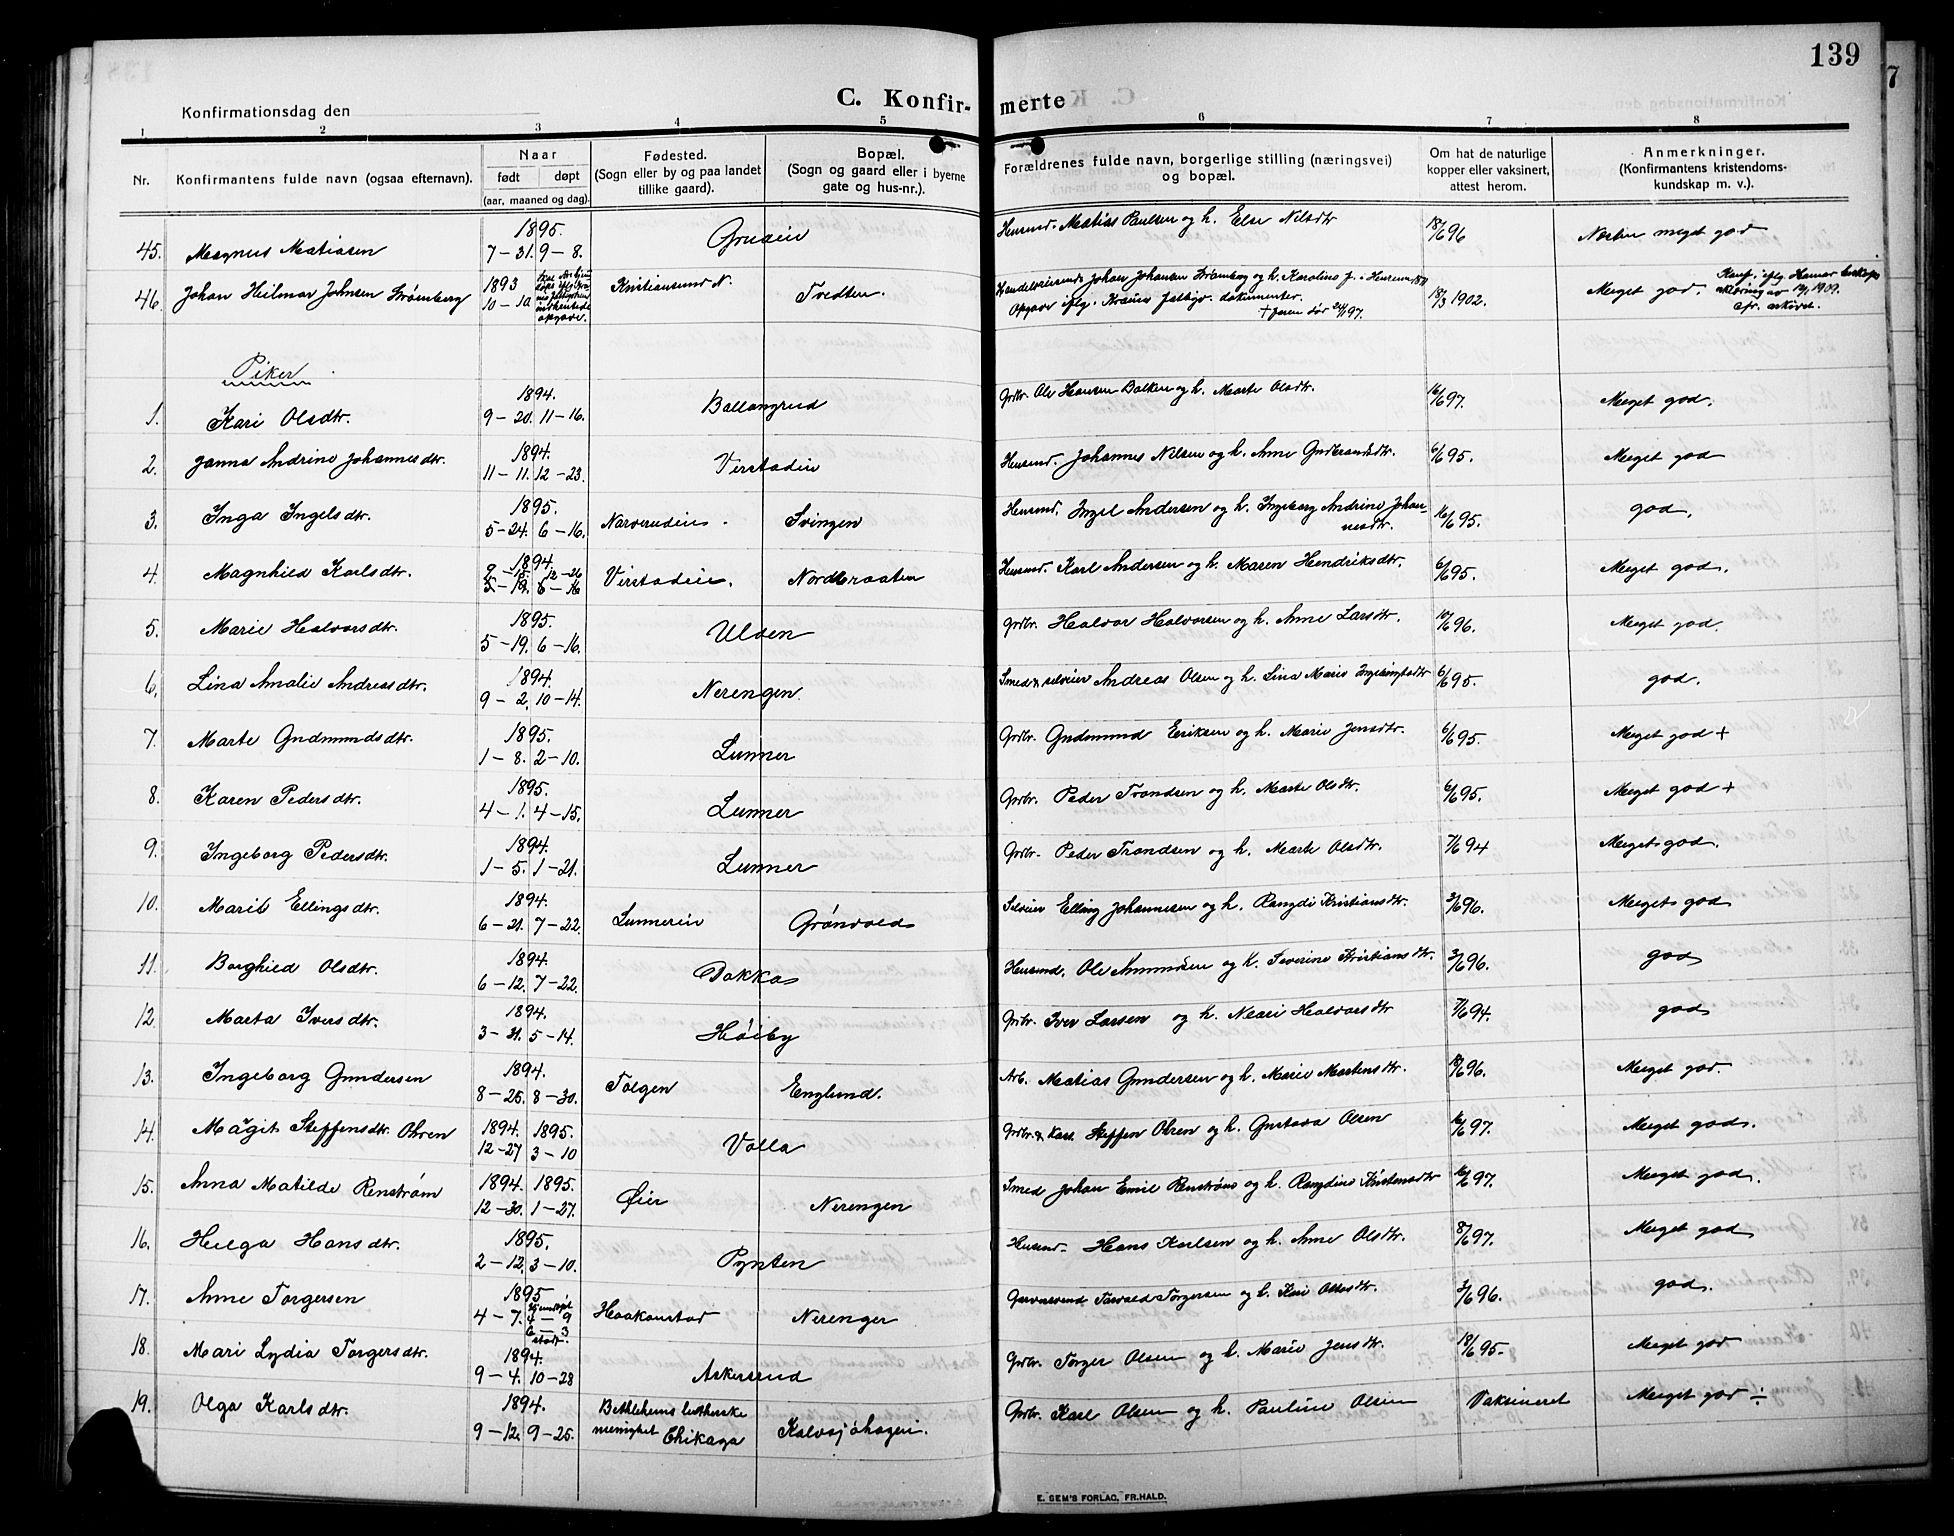 139
C. Konfirmerte
Konfirmationsdag den
1 2 3 4 5 6 7 8
Nr. Konfirmantens fulde navn (ogsaa efternavn). Naar født døpt (aar, maaned og dag). Fødested. (Sogn eller by og paa landet tillike gaard). Bopæl. (Sogn og gaard eller i byerne gate og hus-nr.). Forældrenes fulde navn, borgerlige stilling (næringsvei) og bopæl. Om hat de naturlige kopper eller vaksinert, attest herom. Anmerkninger. (Konfirmantens kristendoms- kundskap m. v.).
45. Magnus Matiasen 1895. 7–31. 9–8. Husmd. Matias Paulsen og h. Else Nilsdtr 18/6 96 Næsten meget god
46. Johan Heilmar Johnsen Strømberg 1893 10–10 Kristiansund N. Tvedten. Johan Johansen Strømberg og h. Karoline f. 18/3 1902. Meget god.
Opgaver iflg. dokumenter.
Piker
1. Kari Olsdtr. 1894. 9–20. 11–16. Ballangrud Grdbr. Ole Hansen Balken og h. Marte Olsdtr. 16/6 97. Meget god.
2. Janna Andrine Johannesdtr. 1894. 11–11. 12–23. Husmd. Johannes Nilsen og h. Anne Gudbrandsdtr. 6/6 95. Meget god
3. Inga Ingelsdtr. 1895. 5–24. 6–16. Svingen Husmd. Ingel Andersen og h. Ingeborg Andrine Johannesdtr. 16/6 95. god.
4. Magnhild Karlsdtr. 1894. Nordbraaten Husmd. Karl Andersen og h. Maren Hendriksdtr. 6/6 95. Meget god.
5. Marie Halvorsdtr. 1895. 5–19. 6–16. Ulven Grdbr. Halvor Halvorsen og h. Anne Larsdtr. 96. Meget god.
6. Lina Amalie Andreasdtr. 1894. 9–2. 10–14. Nerengen. Smed & selveier Andreas Olsen og h. Lina Marie 6/6 95. god.
7. Marte Gudmundsdtr. 1895. 1–8. 2–10. Lunner Grdbr. Gudmund Eriksen og h. Marie Jensdtr. 6/6 95. Meget god +
8. Karen Pedersdtr. 1895. 4–1. 4–15. Lunner Grdbr. Peder Trondsen og h. Marte Olsdtr. 6/6 95. Meget god +
9. Ingeborg Pedersdtr. 1894. 1–5. 1–21. Lunner Grdbr. Peder Trondsen og h. Marte Olsdtr. 7/6 94 Meget god.
10. Marie Ellingsdtr. 1894. 6–21. 7–22. Lunnereie Grønvold Selveier Elling Johannesen og h. Rangdi Kristiansdtr. 3/6 96. Meget god
11. Borghild Olsdtr. 1894. 6–12. 7–22. Dokka Husmd. Ole Amundsen og h. Severine Kristiansdtr. 3/6 96. god
12. Marta Iversdtr. 1894. 3–31. 5–14. Høiby Grdbr. Iver Larsen og h. Mari Halvorsdtr 7/6 94. god
13. Ingeborg Gundersen 1894. 8–25. 8–30. Tolgen Englund. Arb. Matias Gundersen og h. Marie Martensdtr. 96. Meget god.
14. Magit Steffensdtr. Ohren 1894. 1895. 12–27 3–10 Volla Grdbr. & Kirkes. Steffen Ohren og h. Gustava Olsen 16/6 97. Meget god.
15. Anna Matilde Renstrøm 1894. 1895. 12–30. 1–27. Øier Nerengen Smed Johan Emil Renstrøm og h. Rangdine Kristensdtr 16/6 97. Meget god.
16. Helga Hansdtr. 1895. 2–12. 3–10. Pynten Husmd. Hans Karlsen og h. Anne Olsdtr. 8/6 97. Meget god
17. Anne Torgersen 1895 4–7. Hjemdøpt 4–9 6–3 stadf. Haakenstad Nerengen Torvald Torgersen og h. Kari 3/6 96. god.
18. Mari Lydia Torgersdtr. 1894. 9–4. 10–28 Askerud Grdbr. Torger Olsen og h. Marie Jensdtr. 18/6 95. Meget god
19. Olga Karlsdtr. 1894. 9–12. 9–25. Bethlehems lutherske menighet Chikago Kalvsjøhagen. Grdbr. Karl Olsen og h. Pauline Olsen Vaksineret Meget god ÷
E. SEM'S FORLAG, FR.HALD.